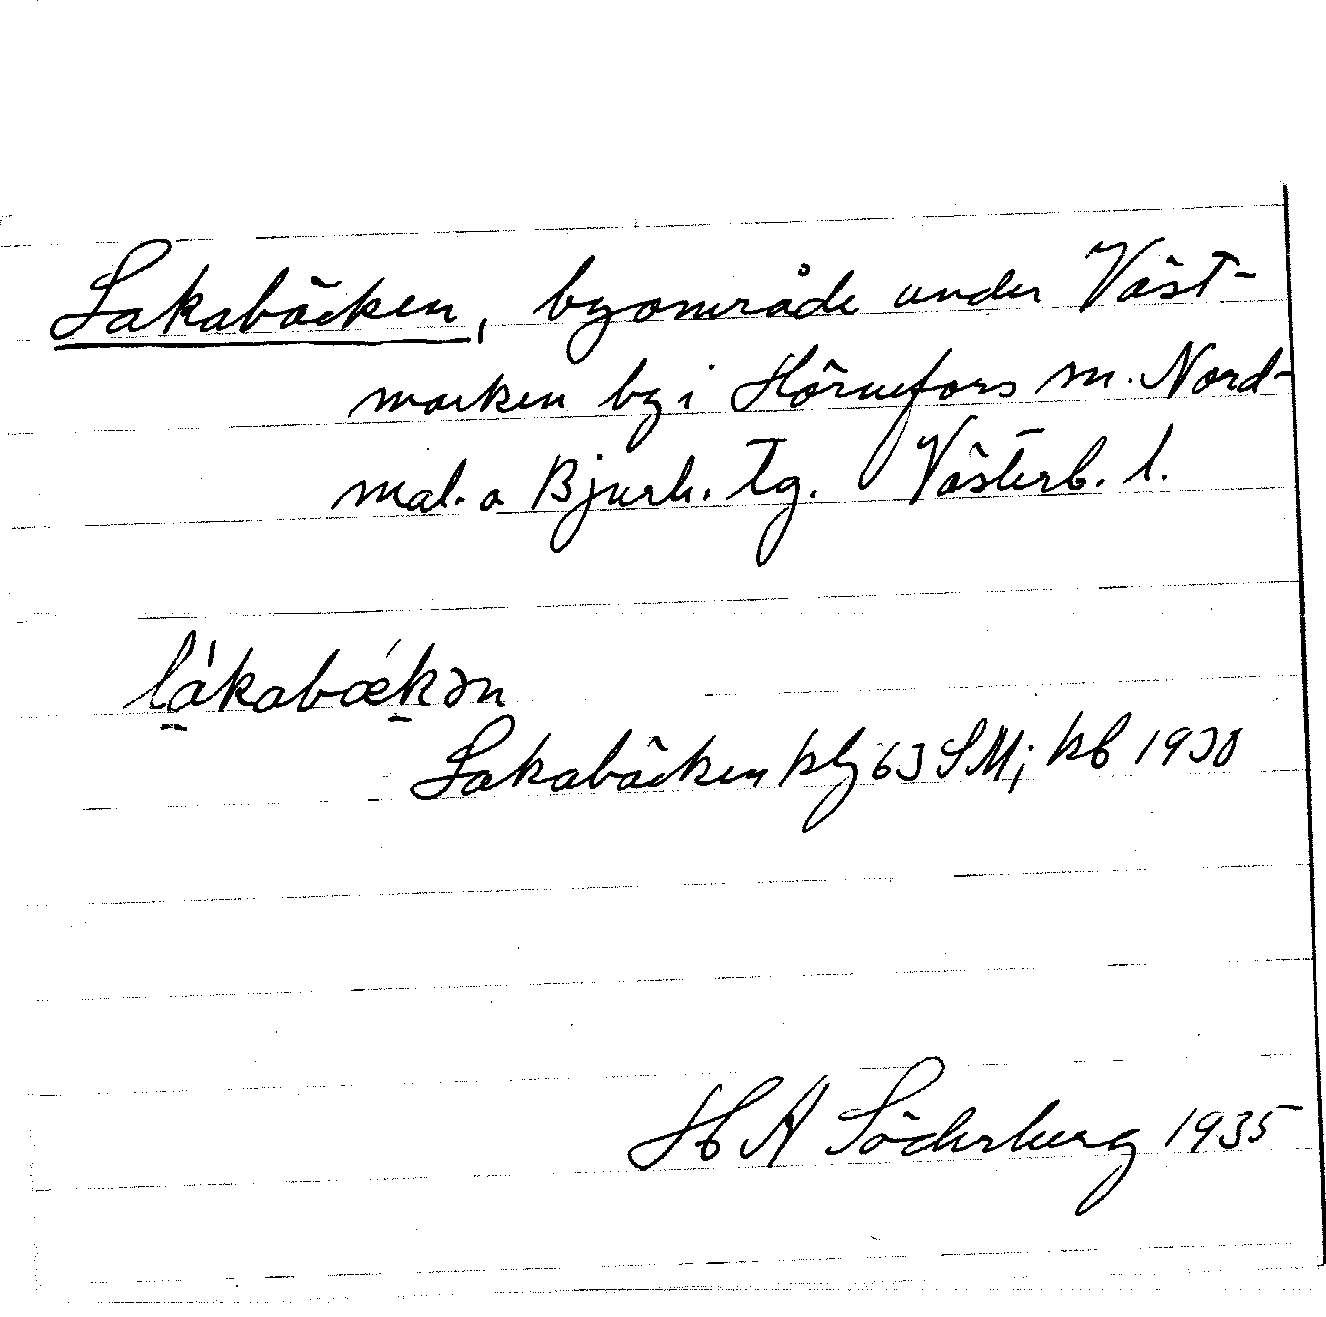 Lakabäcken, byområde under Väst-
marken by i Hörnefors sn. Nord-
mal. o Bjurh. tg. Västerb. l.
lákabǽkən
Lakabäcken kbg 63 SM; kb 1930
H A Söderberg 1935